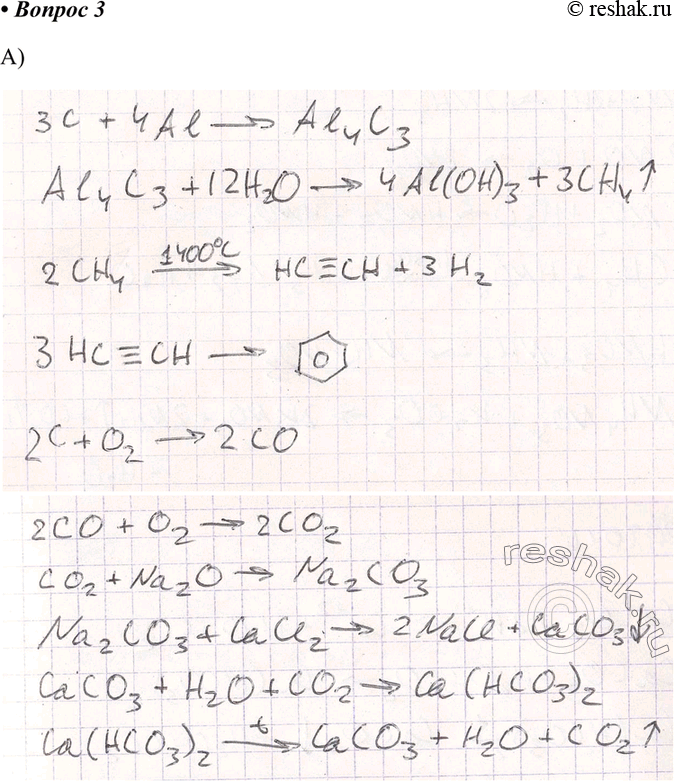 • Вопрос 3
© reshak.ru
А)
3C + 4Al → Al₄C₃
Al₄C₃ + 12H₂O → 4Al(OH)₃ + 3CH₄↑
2CH₄ 1400°C → HC≡CH + 3H₂
3HC≡CH →
2C + O₂ → 2CO
2CO + O₂ → 2CO₂
CO₂ + Na₂O → Na₂CO₃
Na₂CO₃ + CaCl₂ → 2NaCl + CaCO₃↓
CaCO₃ + H₂O + CO₂ → Ca(HCO₃)₂
Ca(HCO₃)₂ t → CaCO₃ + H₂O + CO₂↑
reshak.ru
©